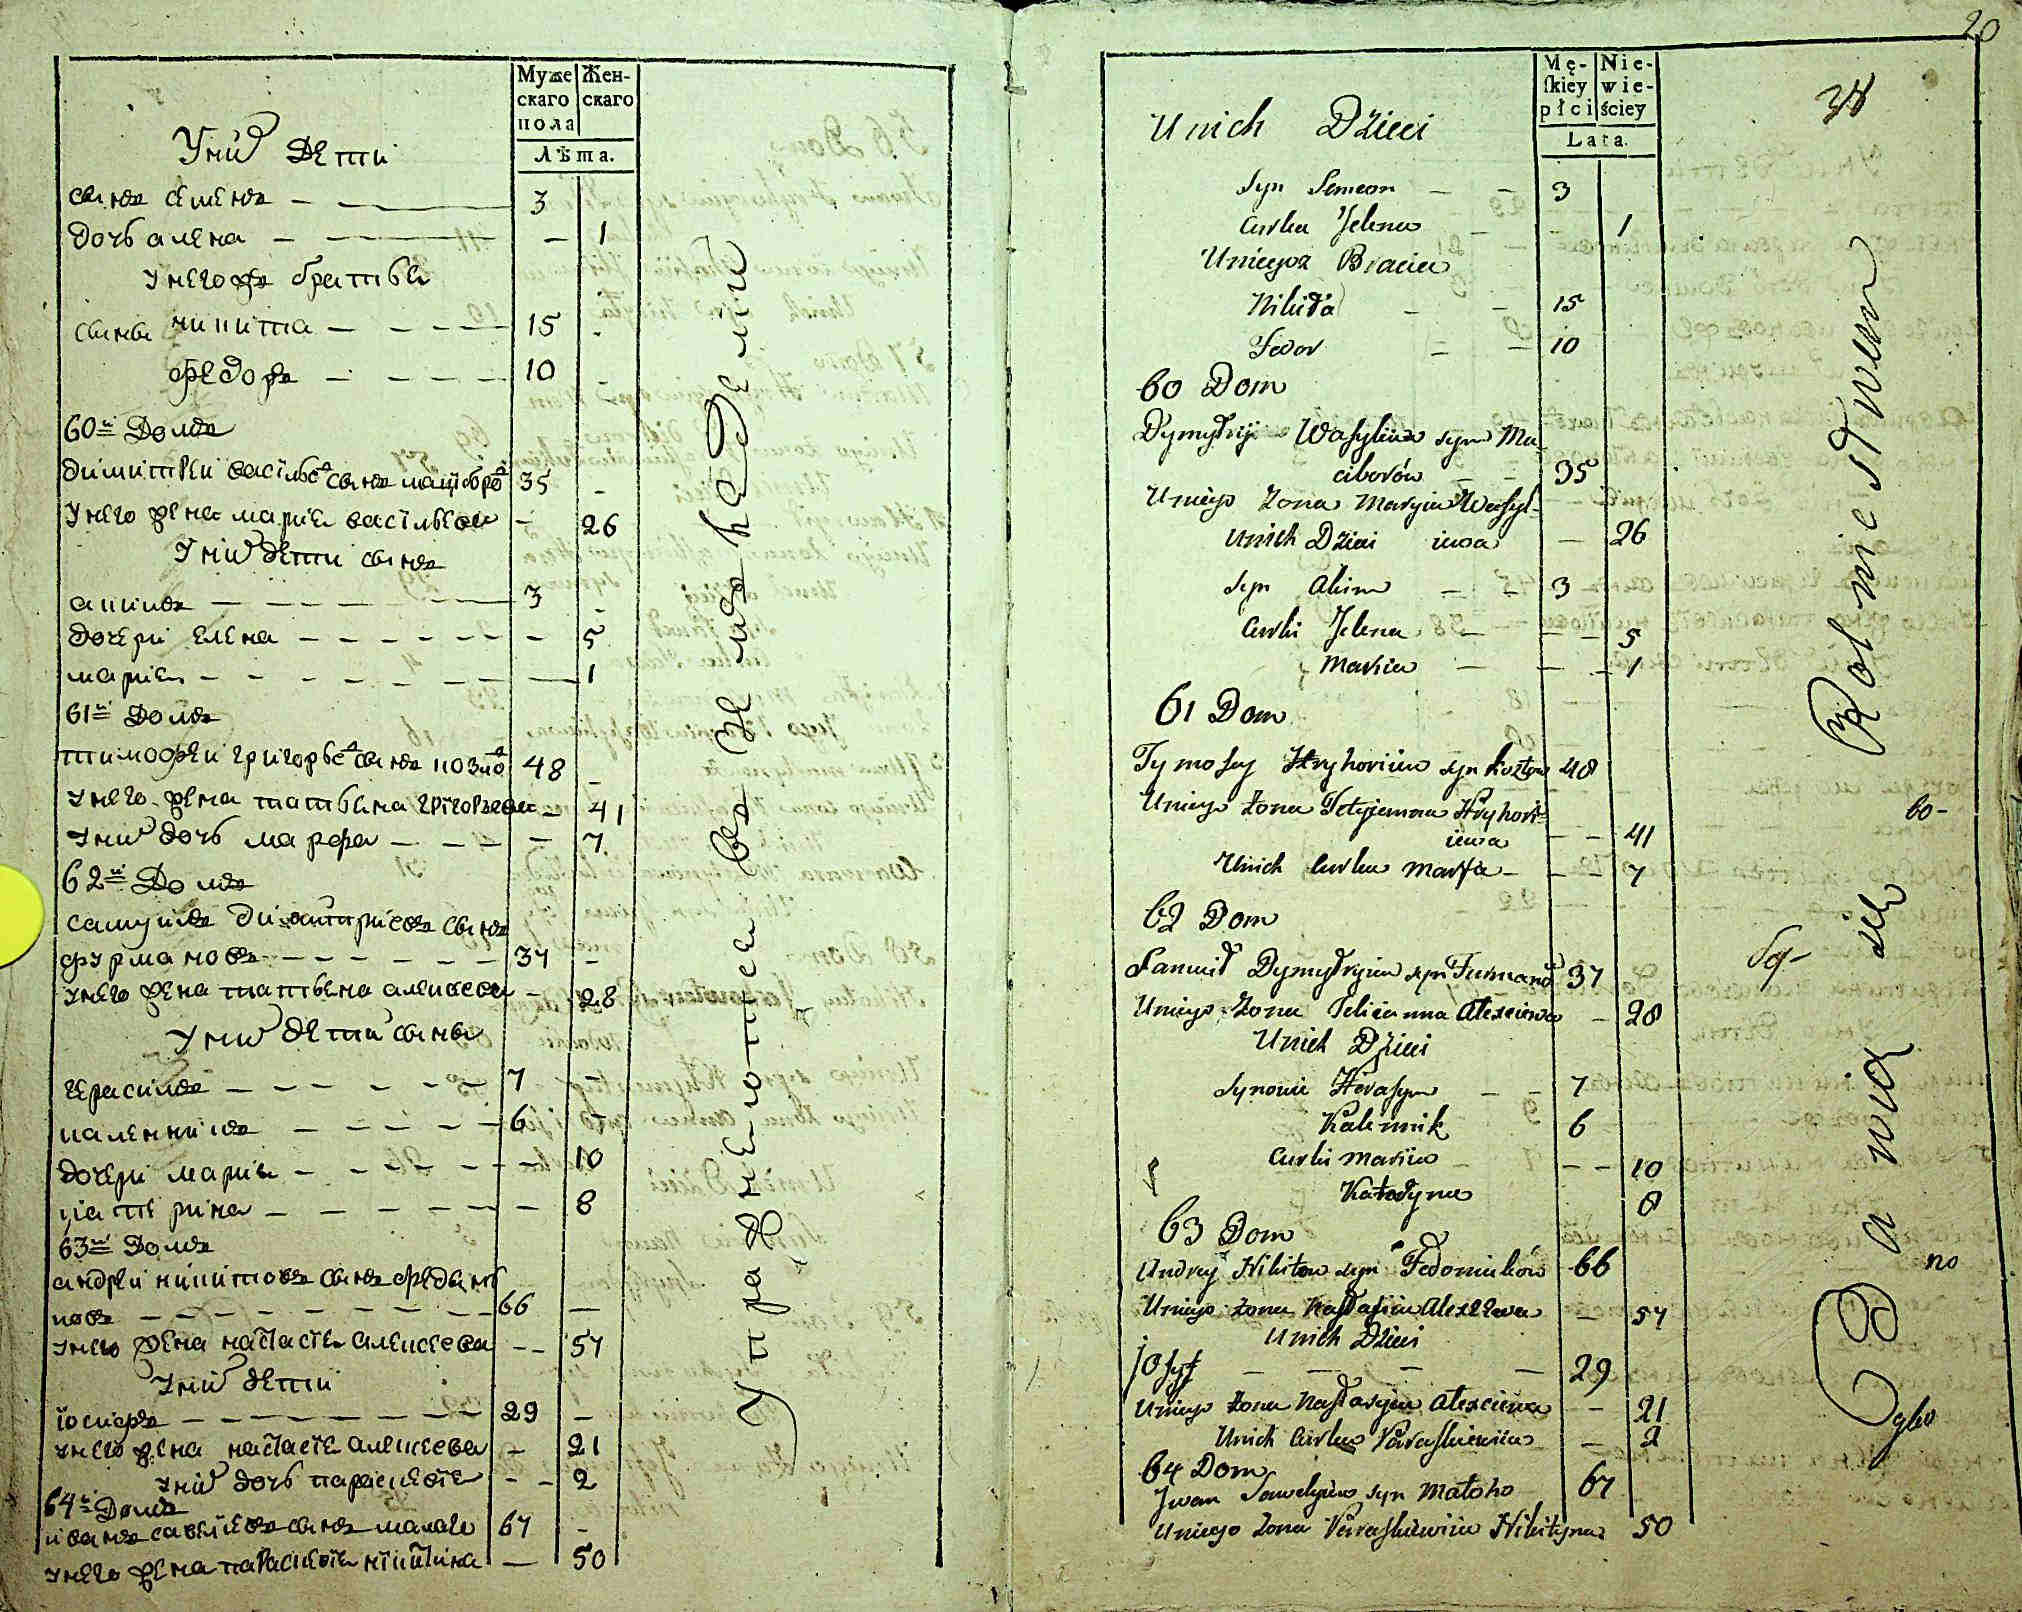 Муже
скаго
пола
Жен-
скаго
Лѣта.
У них дети
сынъ семенъ - 3
дочь алена - - 1
У негоже братья
сыны никита - - - - 15 -
федоръ - - - - 10 -
60й Домъ
димитрей василье сынъ мацыборо 35 -
У него жена мария васильева - 26
У них дети сынъ
акимъ - 3 -
дочери елена - - - - - - 5
мария - - - - - - - 1
61й Домъ
тимофей григорье сынъ козло 48 -
У него жена татьяна григорьева - 41
У них дочь марфа - - - - 7
62й Домъ
самуилъ димитриевъ сынъ
фурмановъ - - - - - - 37 -
У него жена татьяна алексеева - 28
У них дети сыны
герасимъ - - - - - - 7 -
каленникъ - - - - - 6 -
дочери мария - - - - - - 10
катерина - - - - - - - 8
63й Домъ
андрей никитовъ сынъ федын
ковъ - - - - - - - 66 -
У него жена настасия алексеева - - 57
У них дети
иосифъ - - - - - - - 29 -
У него жена настасия алексеева - 21
У них дочь параскевия - - 2
64й Домъ
иванъ савелиевъ сынъ малаго 67 -
У него жена параскевия никитина - 50
20
34
Mę-
skiey
płci
Nie-
wie-
ściey
Lata.
Unich Dzieci
Syn Semeon - - 3
Curka Jelena - - 1
Uniegoz Bracia
Nikita - - 15
Fedor - - 10
60 Dom
Dymytryi Wasyliiew syn Ma
ciborów - - 35
Uniego Zona Maryia Wasyl-
iewa - 26
Unich Dzieci
Syn Akim - - 3
Curki Jelena - - - 5
Maria - - - 1
61 Dom
Tymofey Hryhoriiew syn Kozłow 48
Uniego Zona Tetyianna Hryhori-
iewa - - 41
Unich Curka Marfa - - - 7
62 Dom
Samuił Dymytryiew syn Furmanow 37
Uniego Zona Teliianna Alexeiewa - 28
Unich Dzieci
Synowie Herasym - - 7
Kalennik 6
Curki Maria - - 10
Kateryna 8
63 Dom
Andrey Nikitow syn Fedominków 66
Uniego Zona Nastasyia Alexeiewa - 57
Unich Dzieci
Josyf - - - - 29
Uniego Zona Nastasyia Alexeiewa - 21
Unich Curka Paraskiewiia - 2
64 Dom
Jwan Sawelyiew syn Małoho 67
Uniego Zona Paraskiewiia Nikityna 50
bo-
no